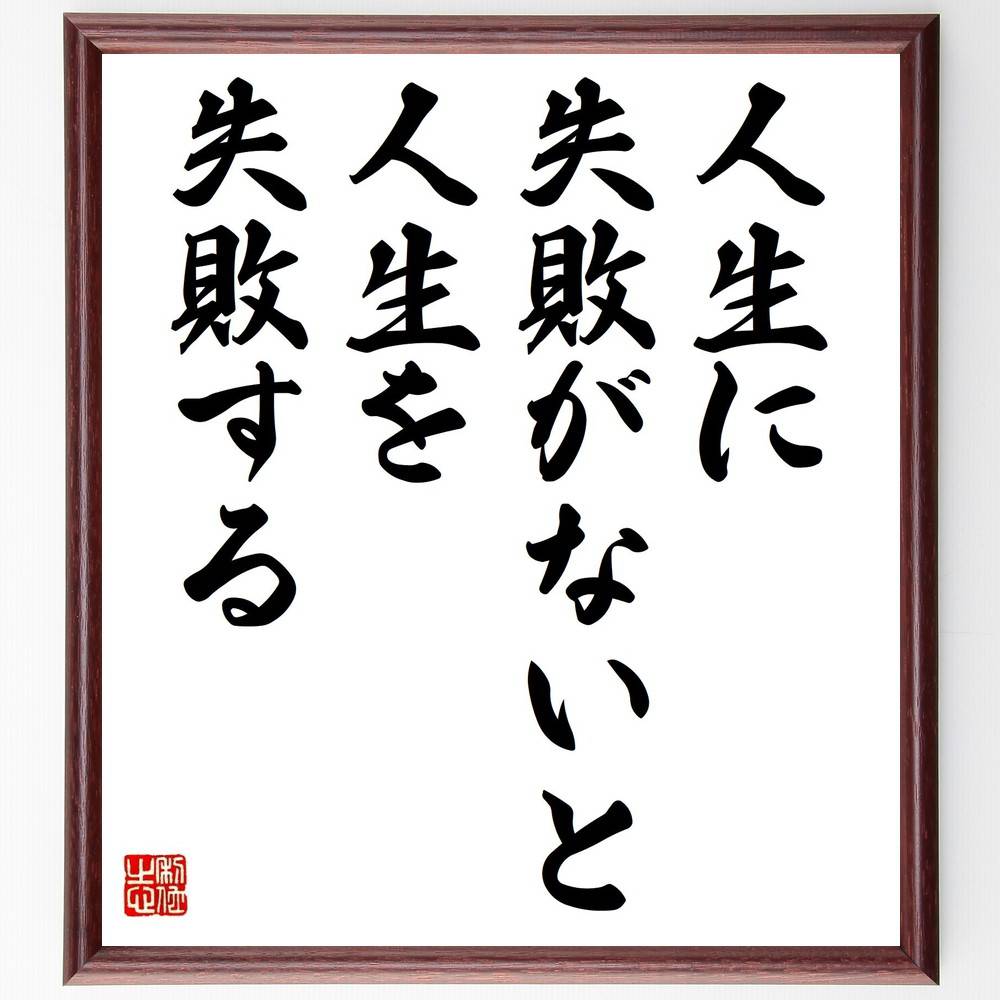 人生に
失敗がないと
人生を
失敗する